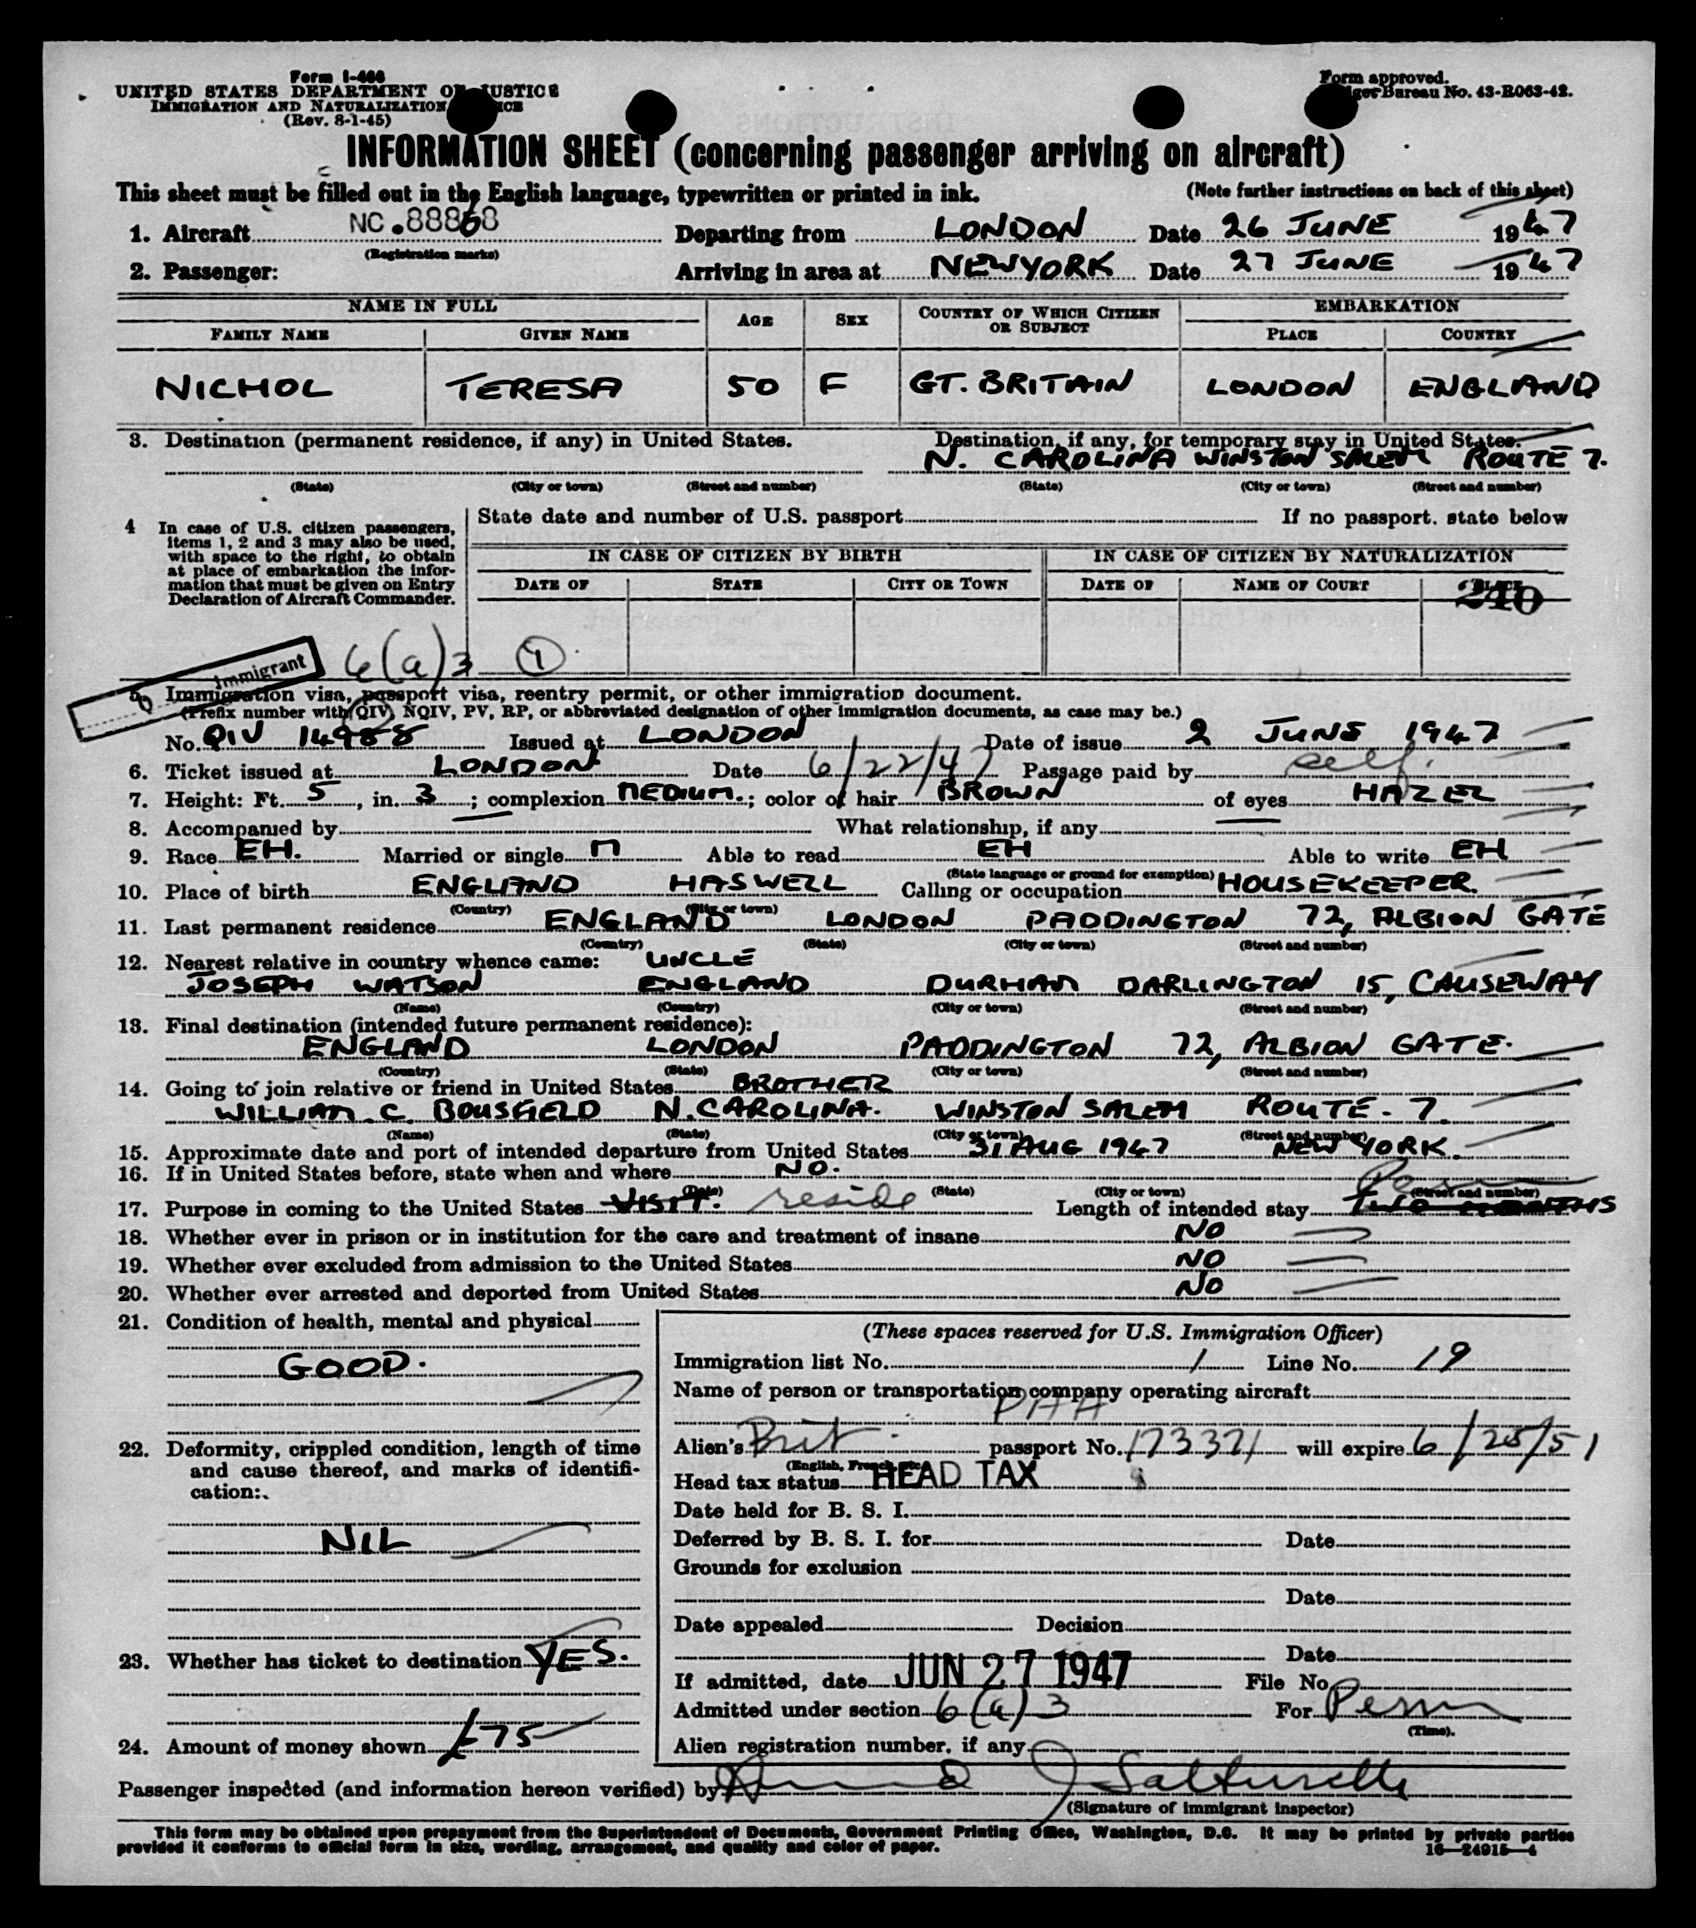 Form I-466
UNITED STATES DEPARTMENT OF JUSTICE
IMMIGRATION AND NATURALIZATION
(Rev. 8-1-45)
Form approved.
Bureau No. 43-R063-42.
INFORMATION SHEET (concerning passenger arriving on aircraft)
This sheet must be filled out in the English language, typewritten or printed in ink. (Note further instructions on back of this sheet)
1. Aircraft NC.88868 Departing from LONDON Date 26 JUNE 1947
(Registration marks)
2. Passenger: Arriving in area at NEW YORK Date 27 JUNE 1947
NAME IN FULL AGE SEX COUNTRY OF WHICH CITIZEN OR SUBJECT EMBARKATION
FAMILY NAME GIVEN NAME PLACE COUNTRY
NICHOL TERESA 50 F GT. BRITAIN LONDON ENGLAND
3. Destination (permanent residence, if any) in United States. Destination, if any, for temporary stay in United States.
N. CAROLINA WINSTON SALEM ROUTE 7.
(State) (City or town) (Street and number) (State) (City or town) (Street and number)
4 In case of U.S. citizen passengers, items 1, 2 and 3 may also be used, with space to the right, to obtain at place of embarkation the information that must be given on Entry Declaration of Aircraft Commander.
State date and number of U.S. passport If no passport. state below
IN CASE OF CITIZEN BY BIRTH IN CASE OF CITIZEN BY NATURALIZATION
DATE OF STATE CITY OR TOWN DATE OF NAME OF COURT PLACE
240
Immigrant 6(a)3
5. Immigration visa, passport visa, reentry permit, or other immigration document.
(Prefix number with QIV, NQIV, PV, RP, or abbreviated designation of other immigration documents, as case may be.)
No. QIV 14988 Issued at LONDON Date of issue 2 JUNE 1947
6. Ticket issued at LONDON Date 6/22/47 Passage paid by self.
7. Height: Ft. 5, in. 3; complexion MEDIUM.; color of hair BROWN of eyes HAZEL
8. Accompanied by What relationship, if any
9. Race EH. Married or single M Able to read EH Able to write EH
(State language or ground for exemption)
10. Place of birth ENGLAND HASWELL Calling or occupation HOUSEKEEPER.
(Country) (City or town)
11. Last permanent residence ENGLAND LONDON PADDINGTON 72, ALBION GATE
(Country) (State) (City or town) (Street and number)
12. Nearest relative in country whence came: UNCLE
JOSEPH WATSON ENGLAND DURHAM DARLINGTON 15, CAUSEWAY
(Name) (Country) (City or town) (Street and number)
13. Final destination (intended future permanent residence):
ENGLAND LONDON PADDINGTON 72, ALBION GATE.
(Country) (State) (City or town) (Street and number)
14. Going to join relative or friend in United States BROTHER
WILLIAM. C. BOUSFIELD N. CAROLINA. WINSTON SALEM ROUTE. 7.
(Name) (State) (City or town) (Street and number)
15. Approximate date and port of intended departure from United States 31 AUG 1947 NEW YORK.
16. If in United States before, state when and where NO.
(Date) (State) (City or town) (Street and number)
17. Purpose in coming to the United States VISIT. reside Length of intended stay TWO MONTHS Perm
18. Whether ever in prison or in institution for the care and treatment of insane NO
19. Whether ever excluded from admission to the United States NO
20. Whether ever arrested and deported from United States NO
21. Condition of health, mental and physical
GOOD.
22. Deformity, crippled condition, length of time and cause thereof, and marks of identification:
NIL
23. Whether has ticket to destination YES.
24. Amount of money shown £75
(These spaces reserved for U.S. Immigration Officer)
Immigration list No. 1 Line No. 19
Name of person or transportation company operating aircraft
PAA
Alien's Brit. passport No. 173371 will expire 6/25/51
(English, French, etc.)
Head tax status HEAD TAX
Date held for B. S. I.
Deferred by B. S. I. for Date
Grounds for exclusion
Date
Date appealed Decision
Date
If admitted, date JUN 27 1947 File No.
Admitted under section 6(a)3 For Perm
(Time).
Alien registration number, if any
Passenger inspected (and information hereon verified) by
(Signature of immigrant inspector)
This form may be obtained upon prepayment from the Superintendent of Documents, Government Printing Office, Washington, D.C. It may be printed by private parties
provided it conforms to official form in size, wording, arrangement, and quality and color of paper. 16—24915-4